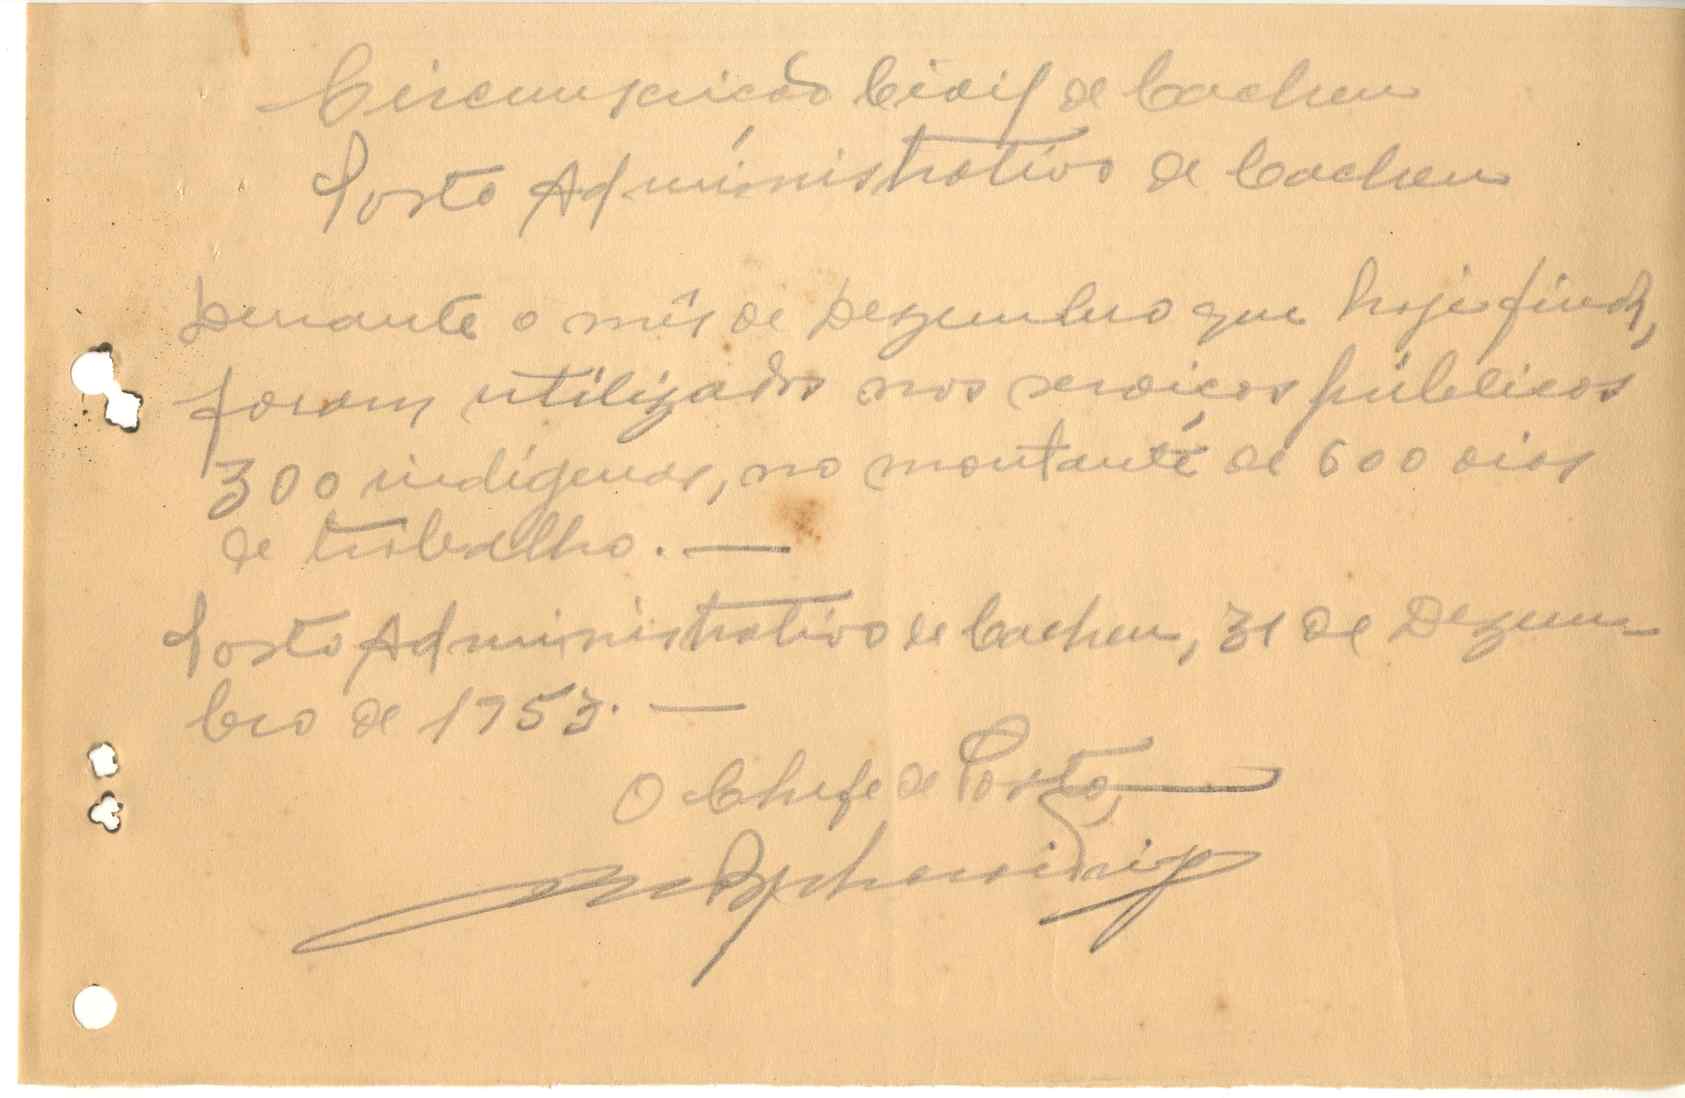 Circunscrição Civil de Cacheu
Posto Administrativo de Cacheu
Durante o mês de Dezembro que hoje finda,
foram utilizados nos serviços públicos
300 indígenas, no montante de 600 dias
de trabalho. —
Posto Administrativo de Cacheu, 31 de Dezem-
bro de 1953. —
O Chefe de Posto,